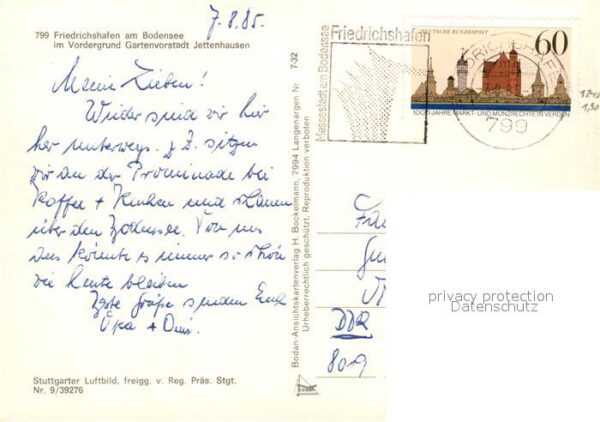 7.8.85.
799 Friedrichshafen am Bodensee
im Vordergrund Gartenvorstadt Jettenhausen
Meine Lieben!
Wieder sind wir hier
her unterwegs. z. Z. sitzen
wir an der Prominade bei
Kaffee + Kuchen und schauen
über den Bodensee. Von uns
aus könnte es immer so schön
wie heute bleiben
Grüße senden Euch
Opa + Omi.
Stuttgarter Luftbild, freigg. v. Reg. Präs. Stgt.
Nr. 9/39276
Bodan-Ansichtskartenverlag H. Bockelmann, 7994 Langenargen Nr 7-32
Urheberrechtlich geschützt, Reproduktion verboten
Messestadt am Bodensee
Friedrichshafen
DEUTSCHE BUNDESPOST
60
1000 JAHRE MARKT- UND MÜNZRECHTE IN VERDEN
FRIEDRICHSHAFEN
799
1,30
DDR
8019
privacy protection
Datenschutz